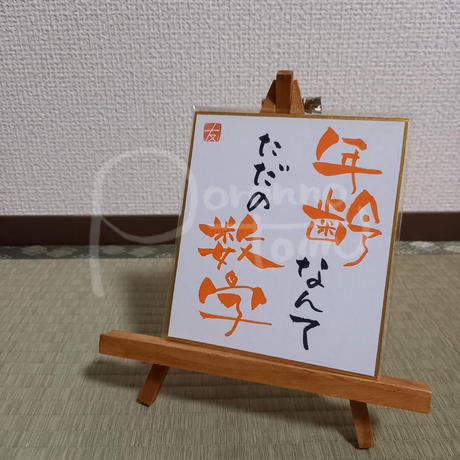 年齢なんて
ただの数字
友